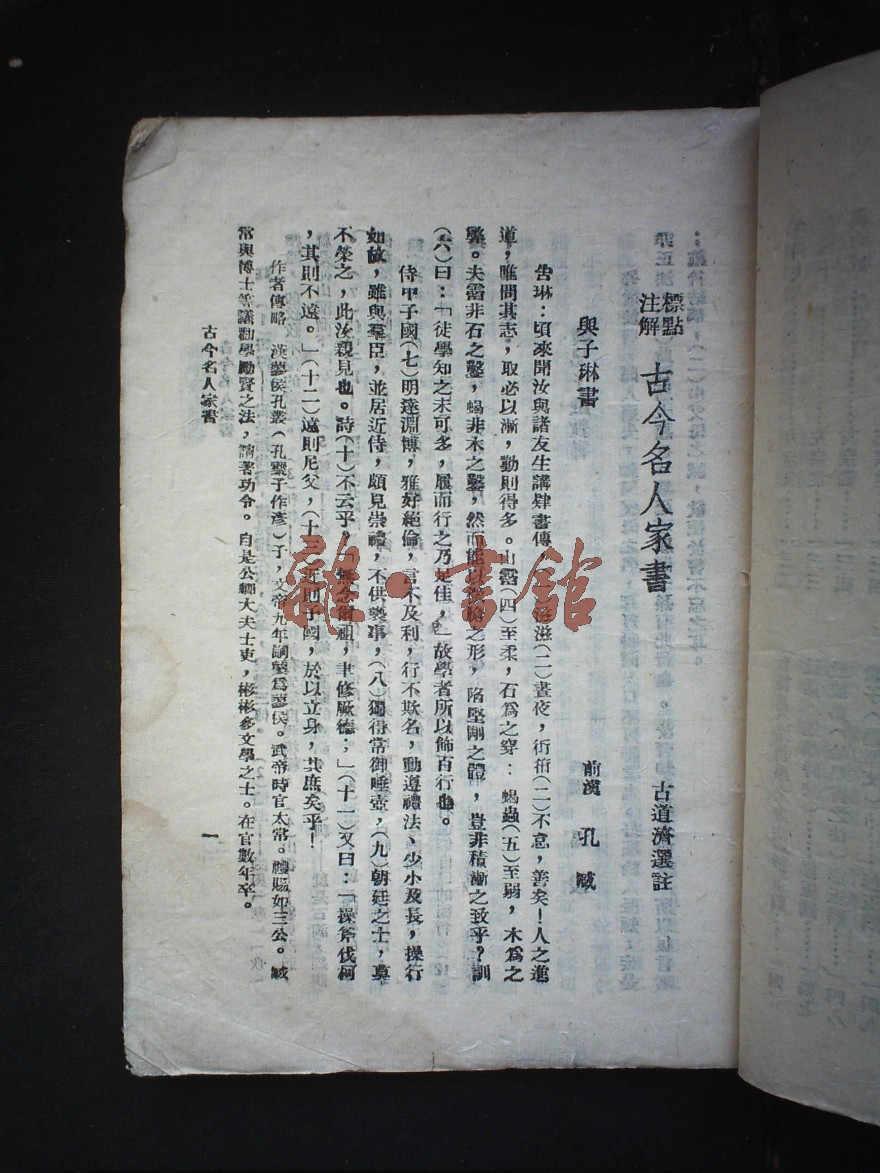 標點
注解
古今名人家書
古道濟選註
與子琳書
前漢 孔臧
告琳：頃來聞汝與諸友生講肄書傳，滋滋（二）晝夜，衎衎（二）不怠，善矣！人之進
道，唯問其志，取必以漸，勤則得多。山霤（四）至柔，石爲之穿：蝎蟲（五）至弱，木爲之
弊。夫霤非石之鑿，蝎非木之鑿，然而能以 之形，陷堅剛之體，豈非積漸之致乎？訓
（六）曰：「徒學知之未可多，履而行之乃足佳，」故學者所以飾百行也。
侍中子國（七）明達淵博，雅好絕倫，言不及利，行不欺名，動遵禮法、少小及長，操行
如故，雖與羣臣，並居近侍，頗見崇禮，不供褻事，（八）獨得常御唾壺，（九）朝廷之士，莫
不榮之，此汝親見也。詩（十）不云乎。「無念爾祖，聿修厥德；」（十一）又曰：「操斧伐柯
，其則不遠。」（十二）遠則尼父，（十三）近則子國，於以立身，其庶矣乎！
作者傳略 漢蓼侯孔藂（孔藂子作彥）子，文帝九年嗣藂爲蓼侯。武帝時官太常。禮賜如三公。臧
常與博士等議勸學勵賢之法，請著功令。自是公卿大夫士吏，彬彬多文學之士。在官數年卒。
古今名人家書
一
龍·書館